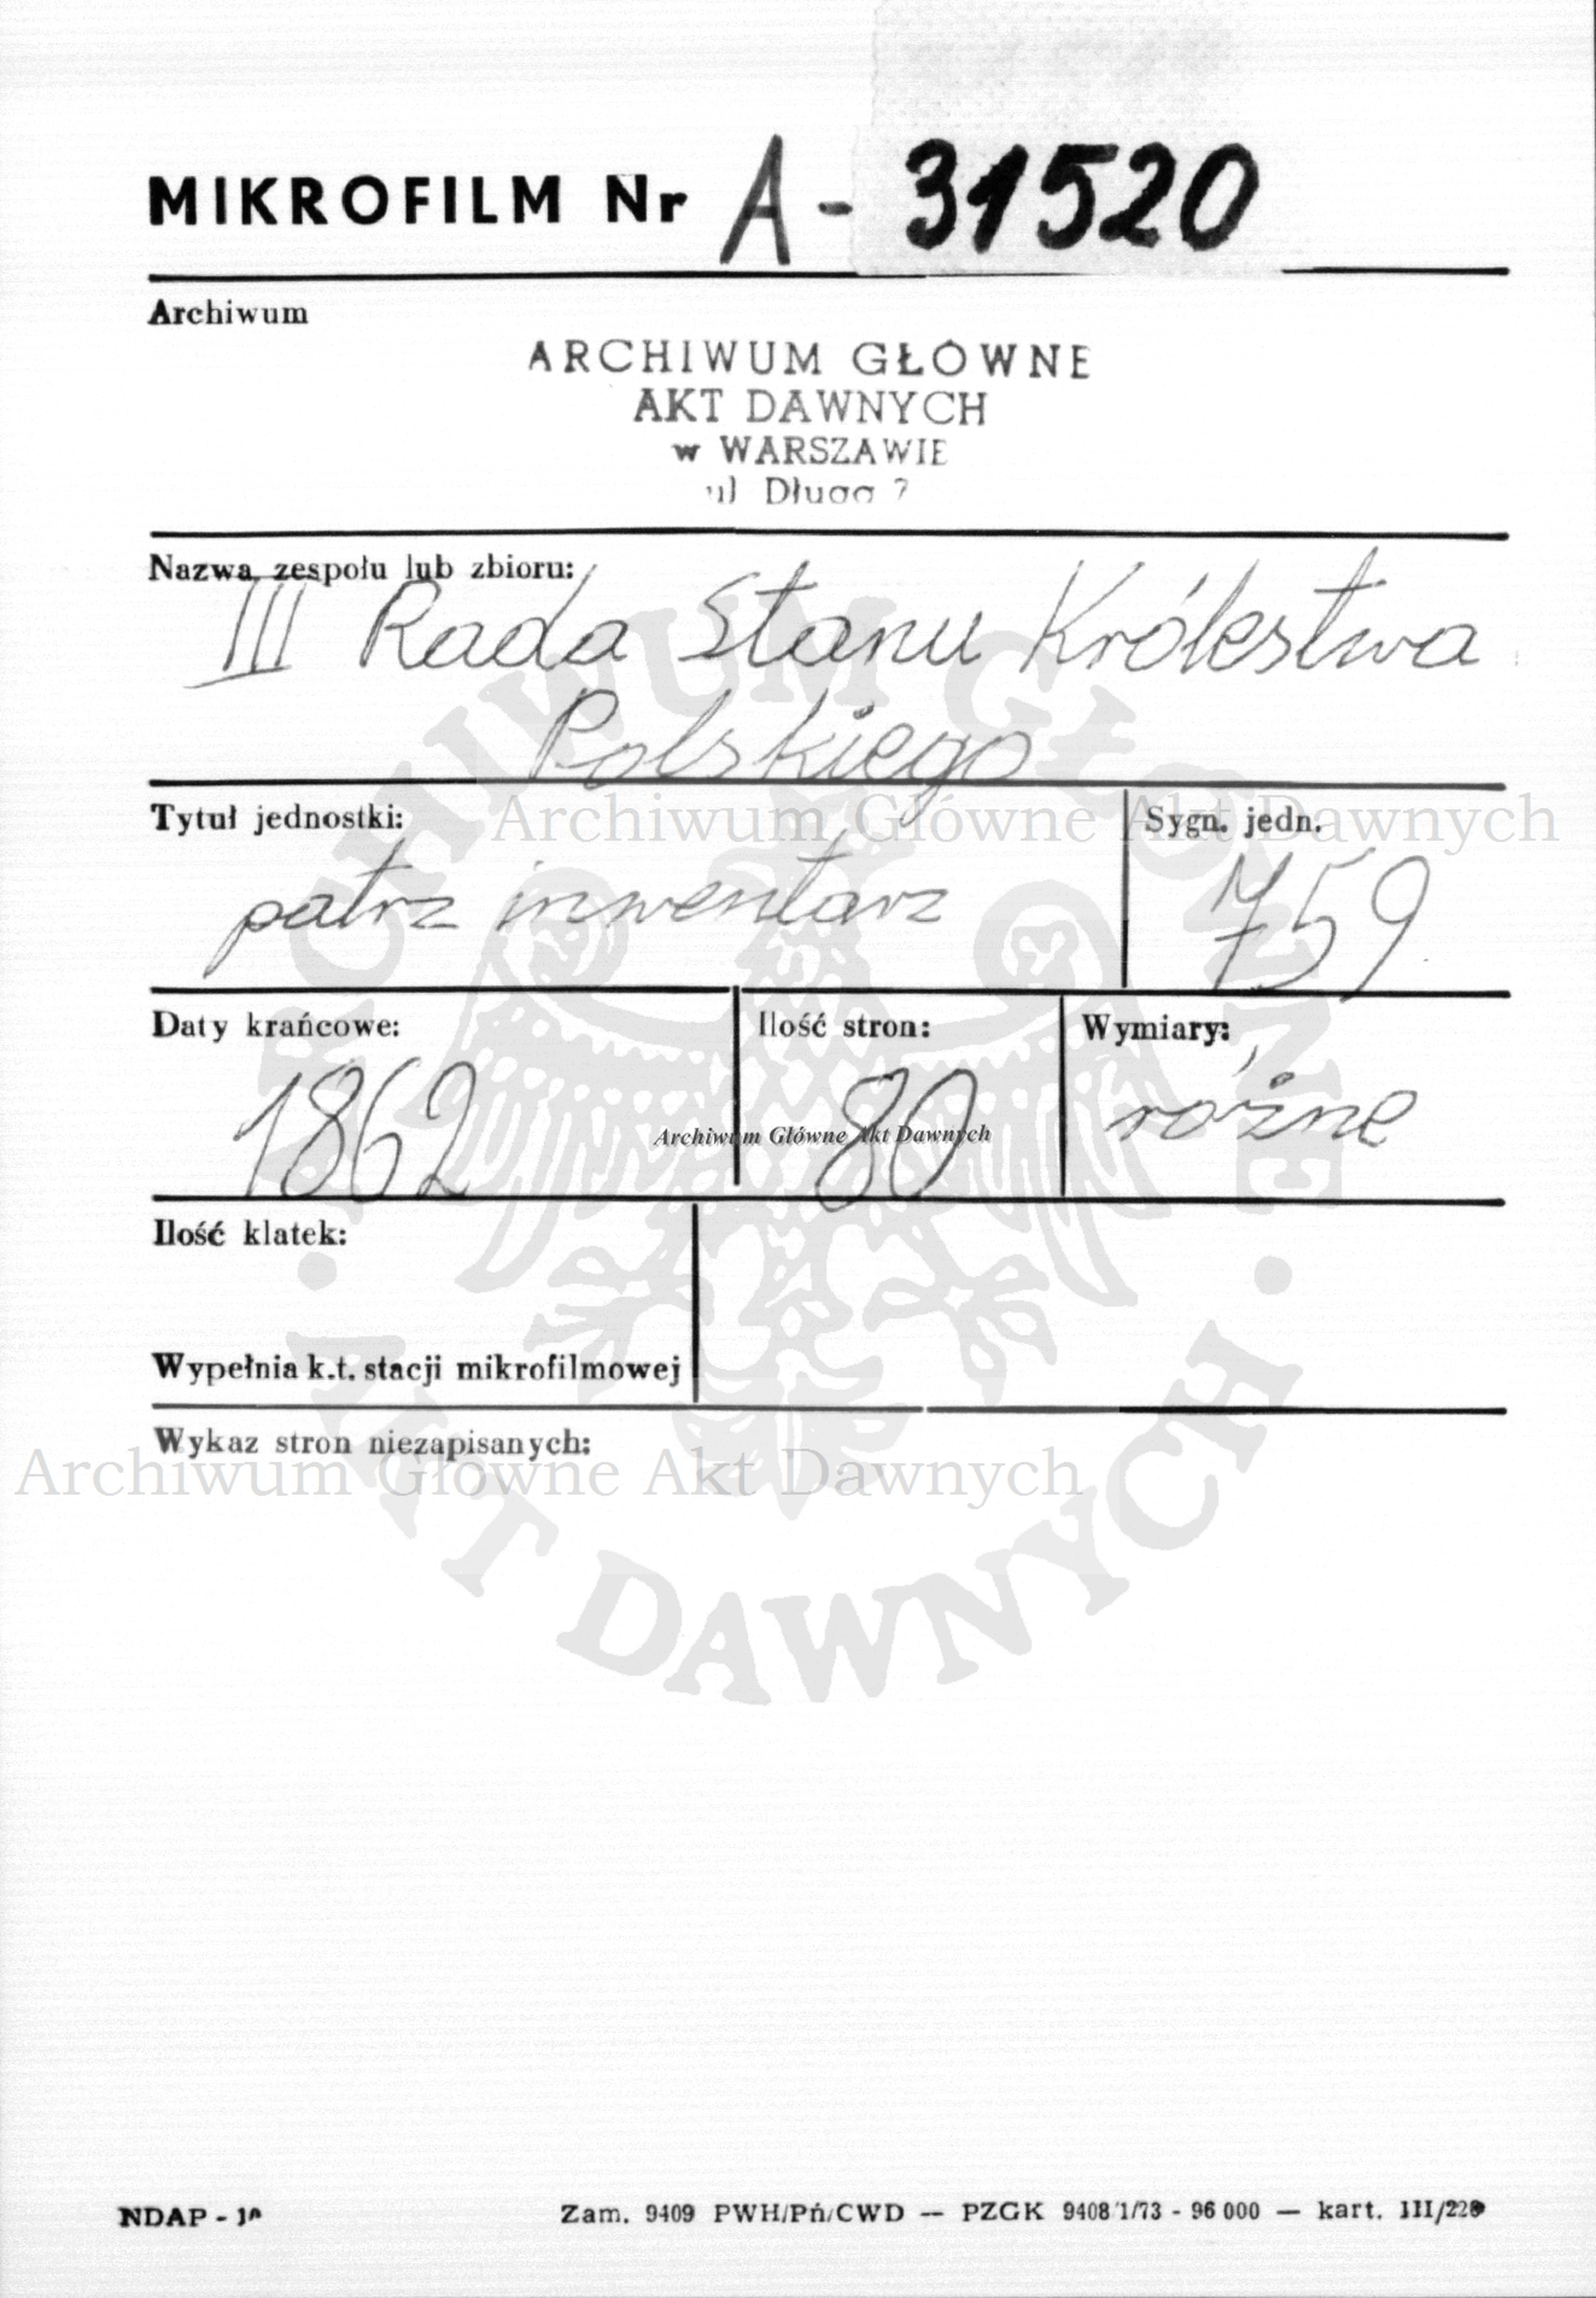 MIKROFILM Nr A - 31520
Archiwum
ARCHIWUM GŁÓWNE
AKT DAWNYCH
w WARSZAWIE
ul Długa 7
Nazwa zespołu lub zbioru:
III Rada Stanu Królestwa
Polskiego
Archiwum Główne Akt Dawnych
Tytuł jednostki:
patrz inwentarz
Sygn. jedn.
759
Daty krańcowe:
1862
Ilość stron:
80
Wymiary:
różne
Archiwum Główne Akt Dawnych
Ilość klatek:
Wypełnia k.t. stacji mikrofilmowej
Wykaz stron niezapisanych:
Archiwum Główne Akt Dawnych
ARCHIWUM GŁÓWNE
AKT DAWNYCH
NDAP -
Zam. 9409 PWH/Pń/CWD — PZGK 9408/1/73 - 96 000 — kart. III/220